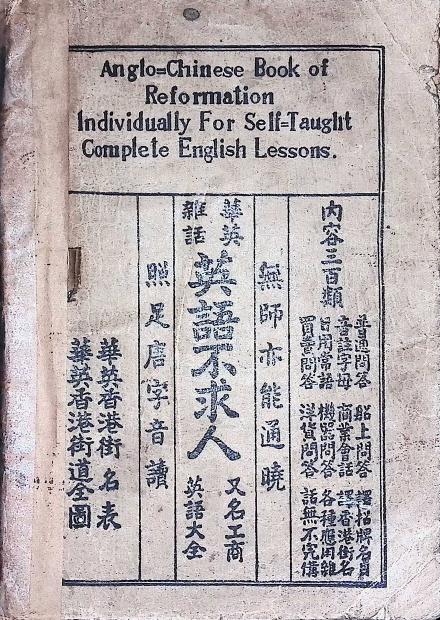 Anglo=Chinese Book of
Reformation
Individually For Self=Taught
Complete English Lessons.
內容三百類
普通問答 船上問答 譯招牌名
音註字母 商業會話 譯香港街名
日用常語 機器問答 各種應用雜
買賣問答 洋貨問答 話無不完備
無師亦能通曉
華英
雜話
英語不求人
又名工商
英語大全
照足唐字音讀
華英香港街名表
華英香港街道全圖